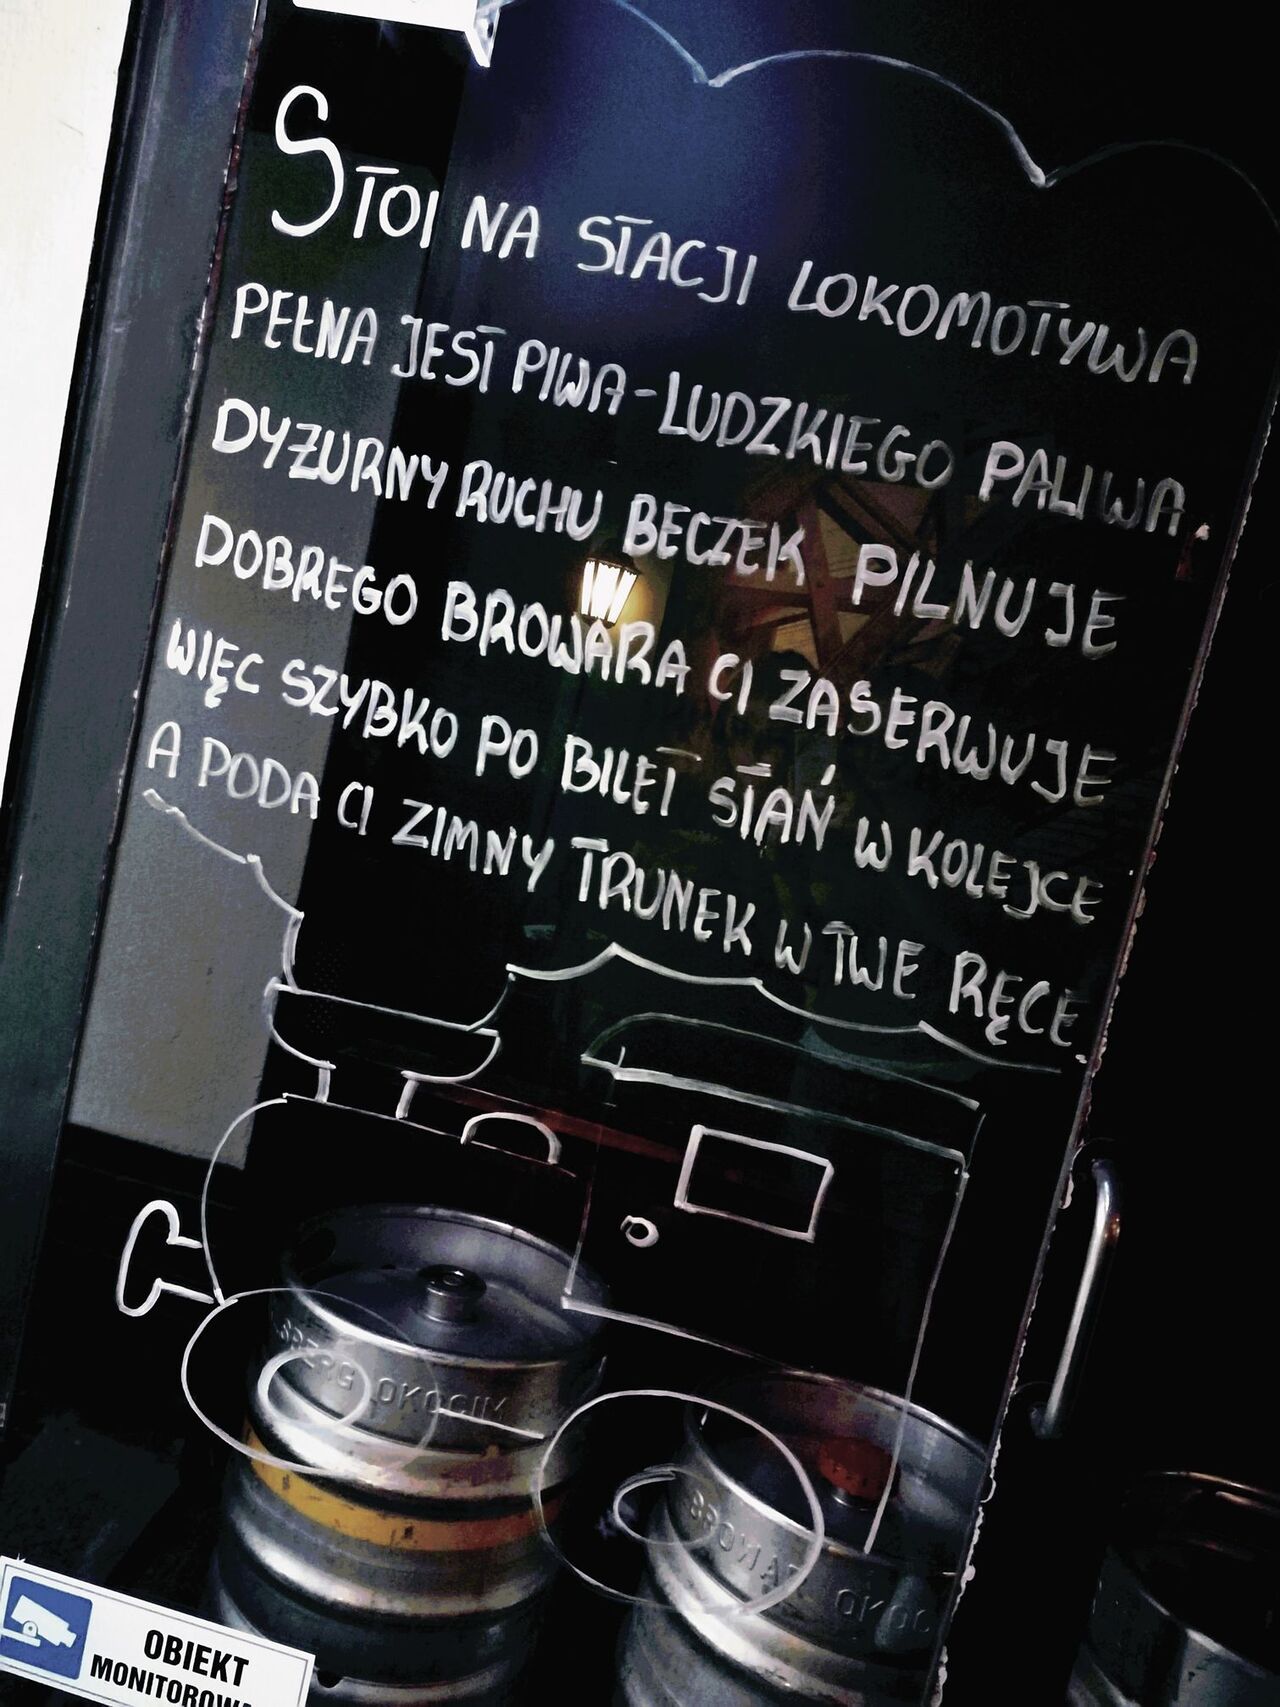 STOI NA STACJI LOKOMOTYWA
PEŁNA JEST PIWA - LUDZKIEGO PALIWA.
DYŻURNY RUCHU BECZEK PILNUJE
DOBREGO BROWARA CI ZASERWUJE
WIĘC SZYBKO PO BILET STAŃ W KOLEJCE
A PODA CI ZIMNY TRUNEK W TWE RĘCE.
OKOCIM
OBIEKT